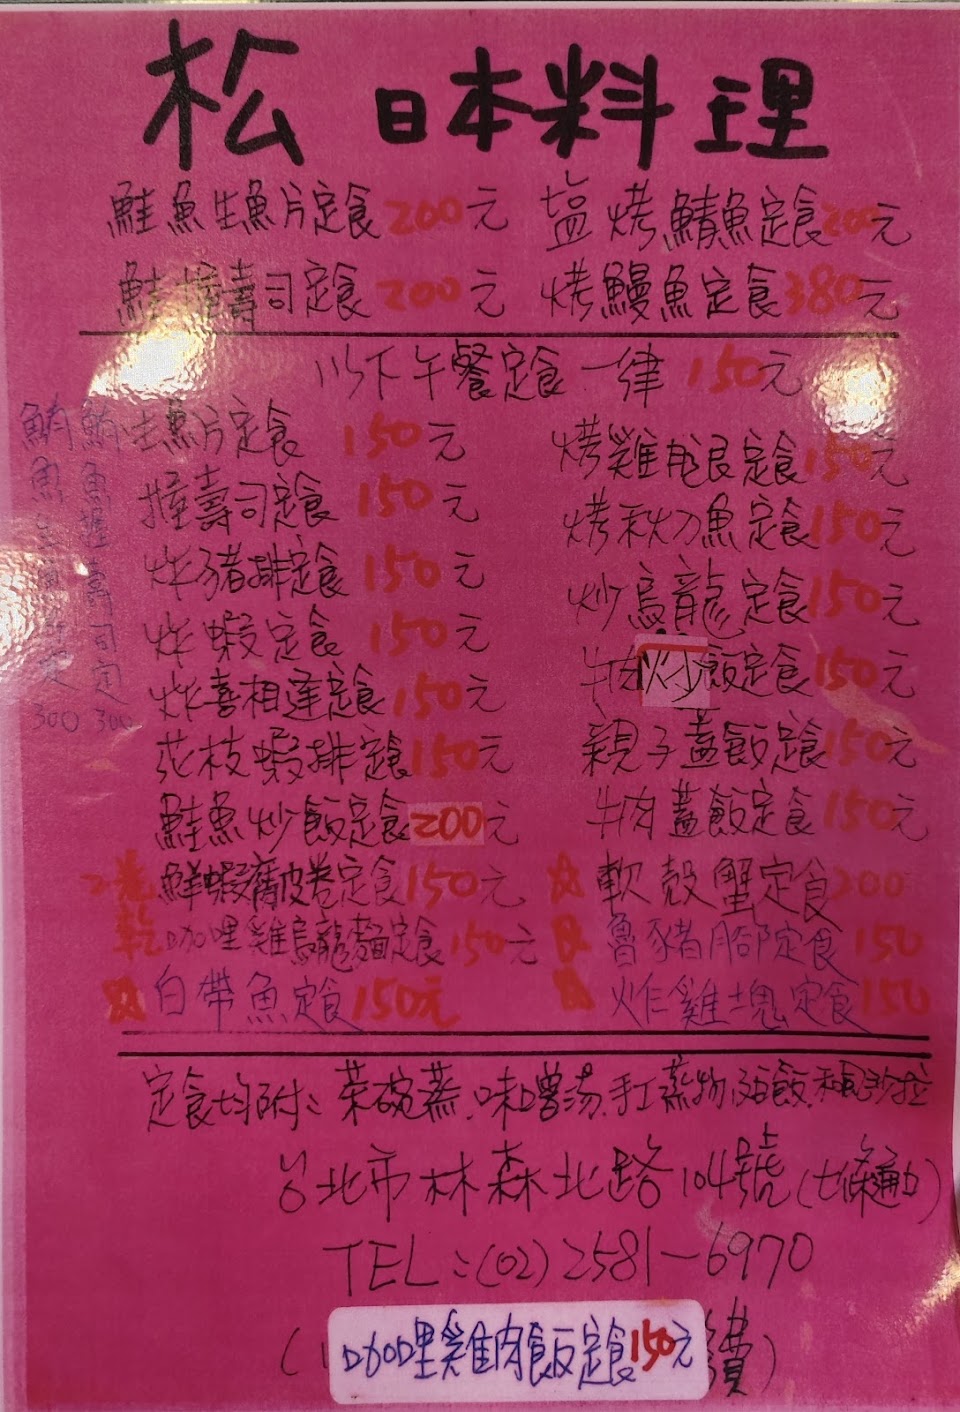 松 日本料理
鮭魚生魚片定食200元
塩烤鯖魚定食200元
鮭握壽司定食200元
烤鰻魚定食380元
以下午餐定食一律150元
生魚片定食 150元
烤雞腿定食150元
握壽司定食150元
烤秋刀魚定食150元
炸豬排定食150元
炒烏龍定食150元
炸蝦定食150元
牛肉炒飯定食150元
炸喜相逢定食150元
親子蓋飯定食150元
花枝蝦排定食150元
牛肉蓋飯定食150元
鮭魚炒飯定食200元
鮮蝦腐皮卷定食150元
☆軟殼蟹定食200
乾 咖哩雞烏龍麵定食150元
☆魯豬腳定食150
☆白帶魚定食150元
☆炸雞塊定食150
鮪魚握壽司定300
鮪魚生魚片定300
定食均附:茶碗蒸、味噌湯、手工蒸物、白飯、和風沙拉
台北市林森北路104號(七條通口)
TEL:(02)2581-6970
咖哩雞肉飯定食150元
費)